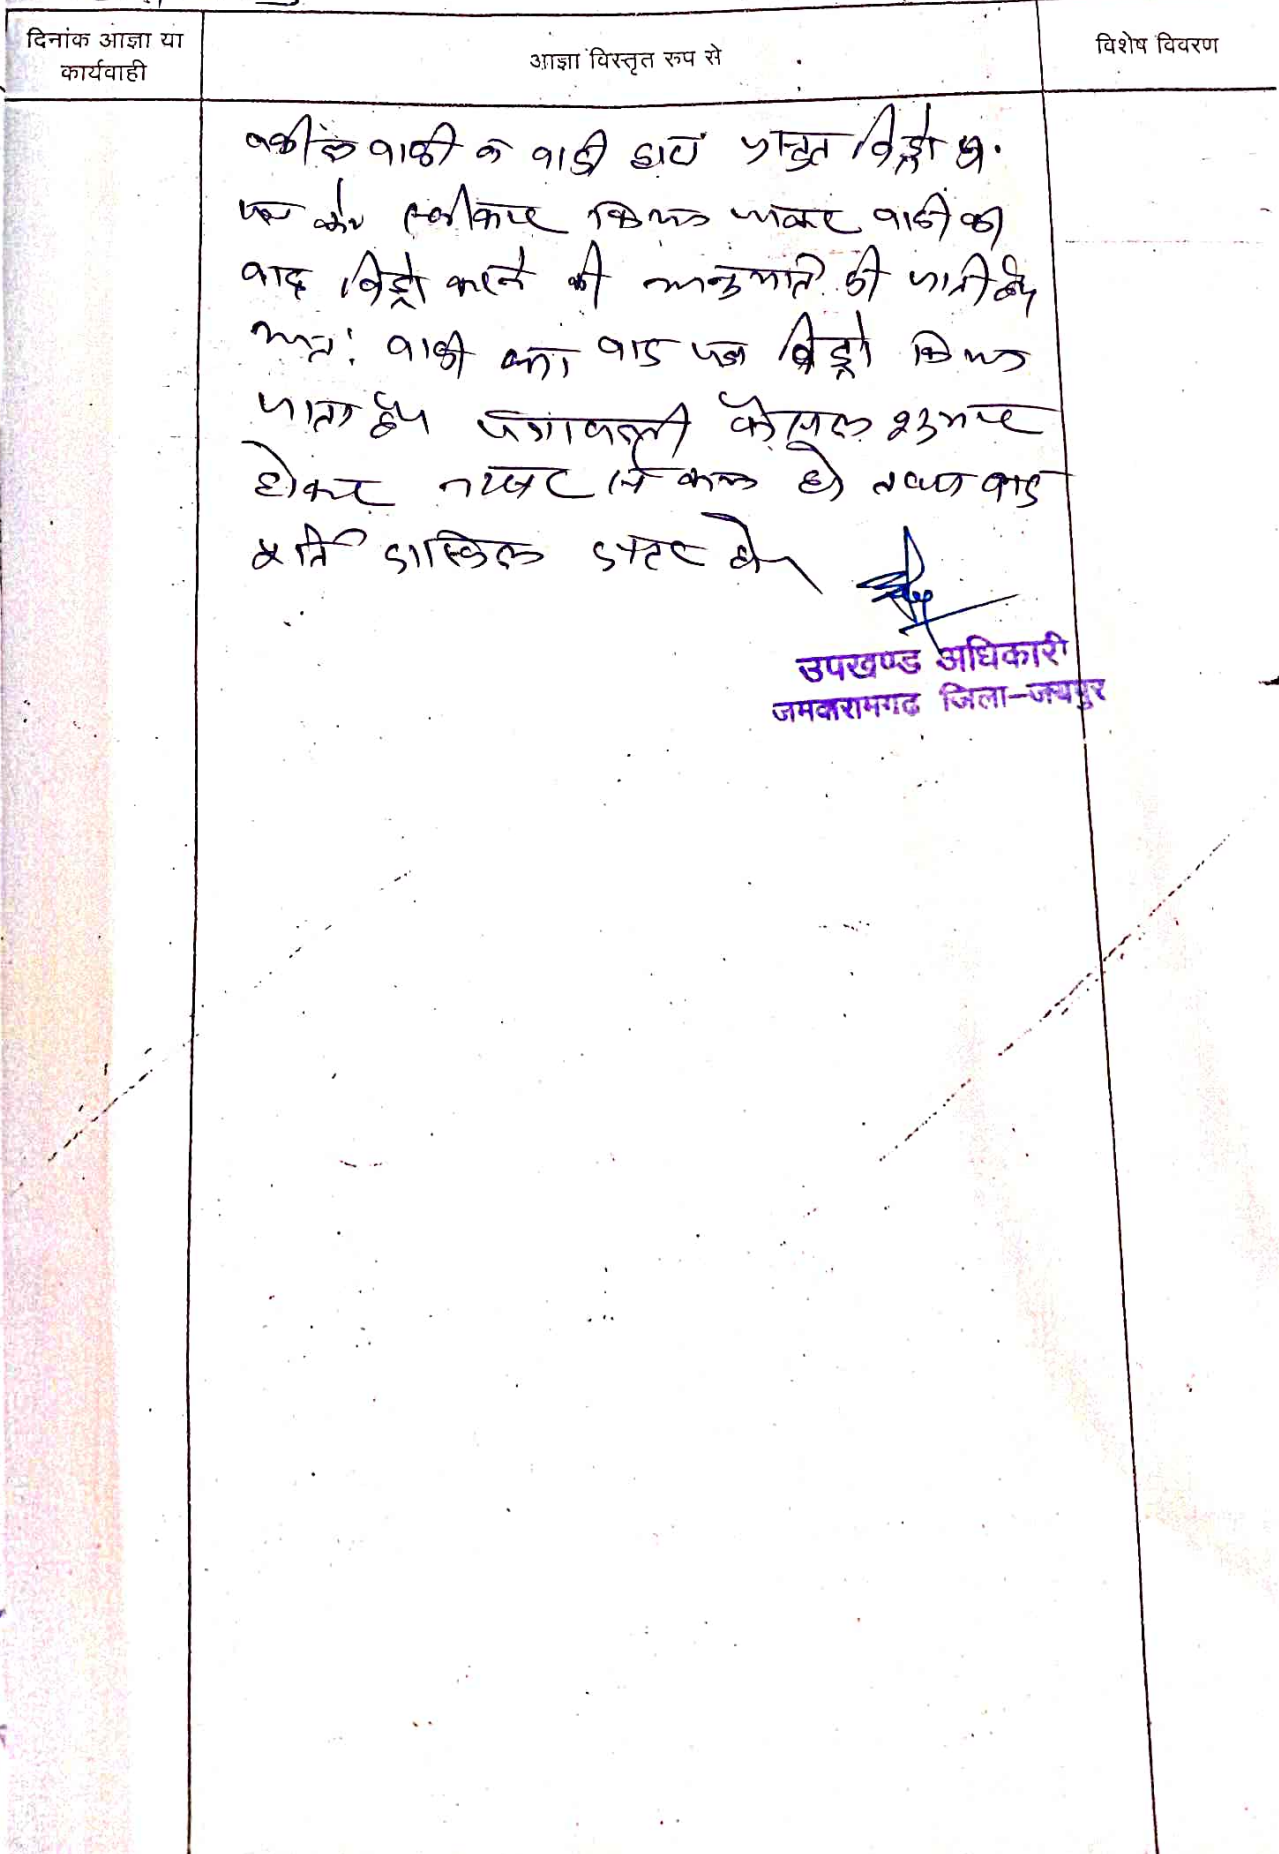 दिनांक आज्ञा या
कार्यवाही
आज्ञा विस्तृत रुप से
विशेष विवरण
वकील वादी व वादी द्वारा प्रस्तुत विड्रो प्रा.
पत्र को स्वीकार किया जाकर वादी को
वाद विड्रो करने की अनुमति दी जाती है।
अतः वादी का वाद पत्र विड्रो किया
जाता है। पत्रावली फैसल शुमार
होकर नम्बर से कम हो तथा बाद
पूर्ति दाखिल दफ्तर हो।
उपखण्ड अधिकारी
जमवारामगढ जिला-जयपुर